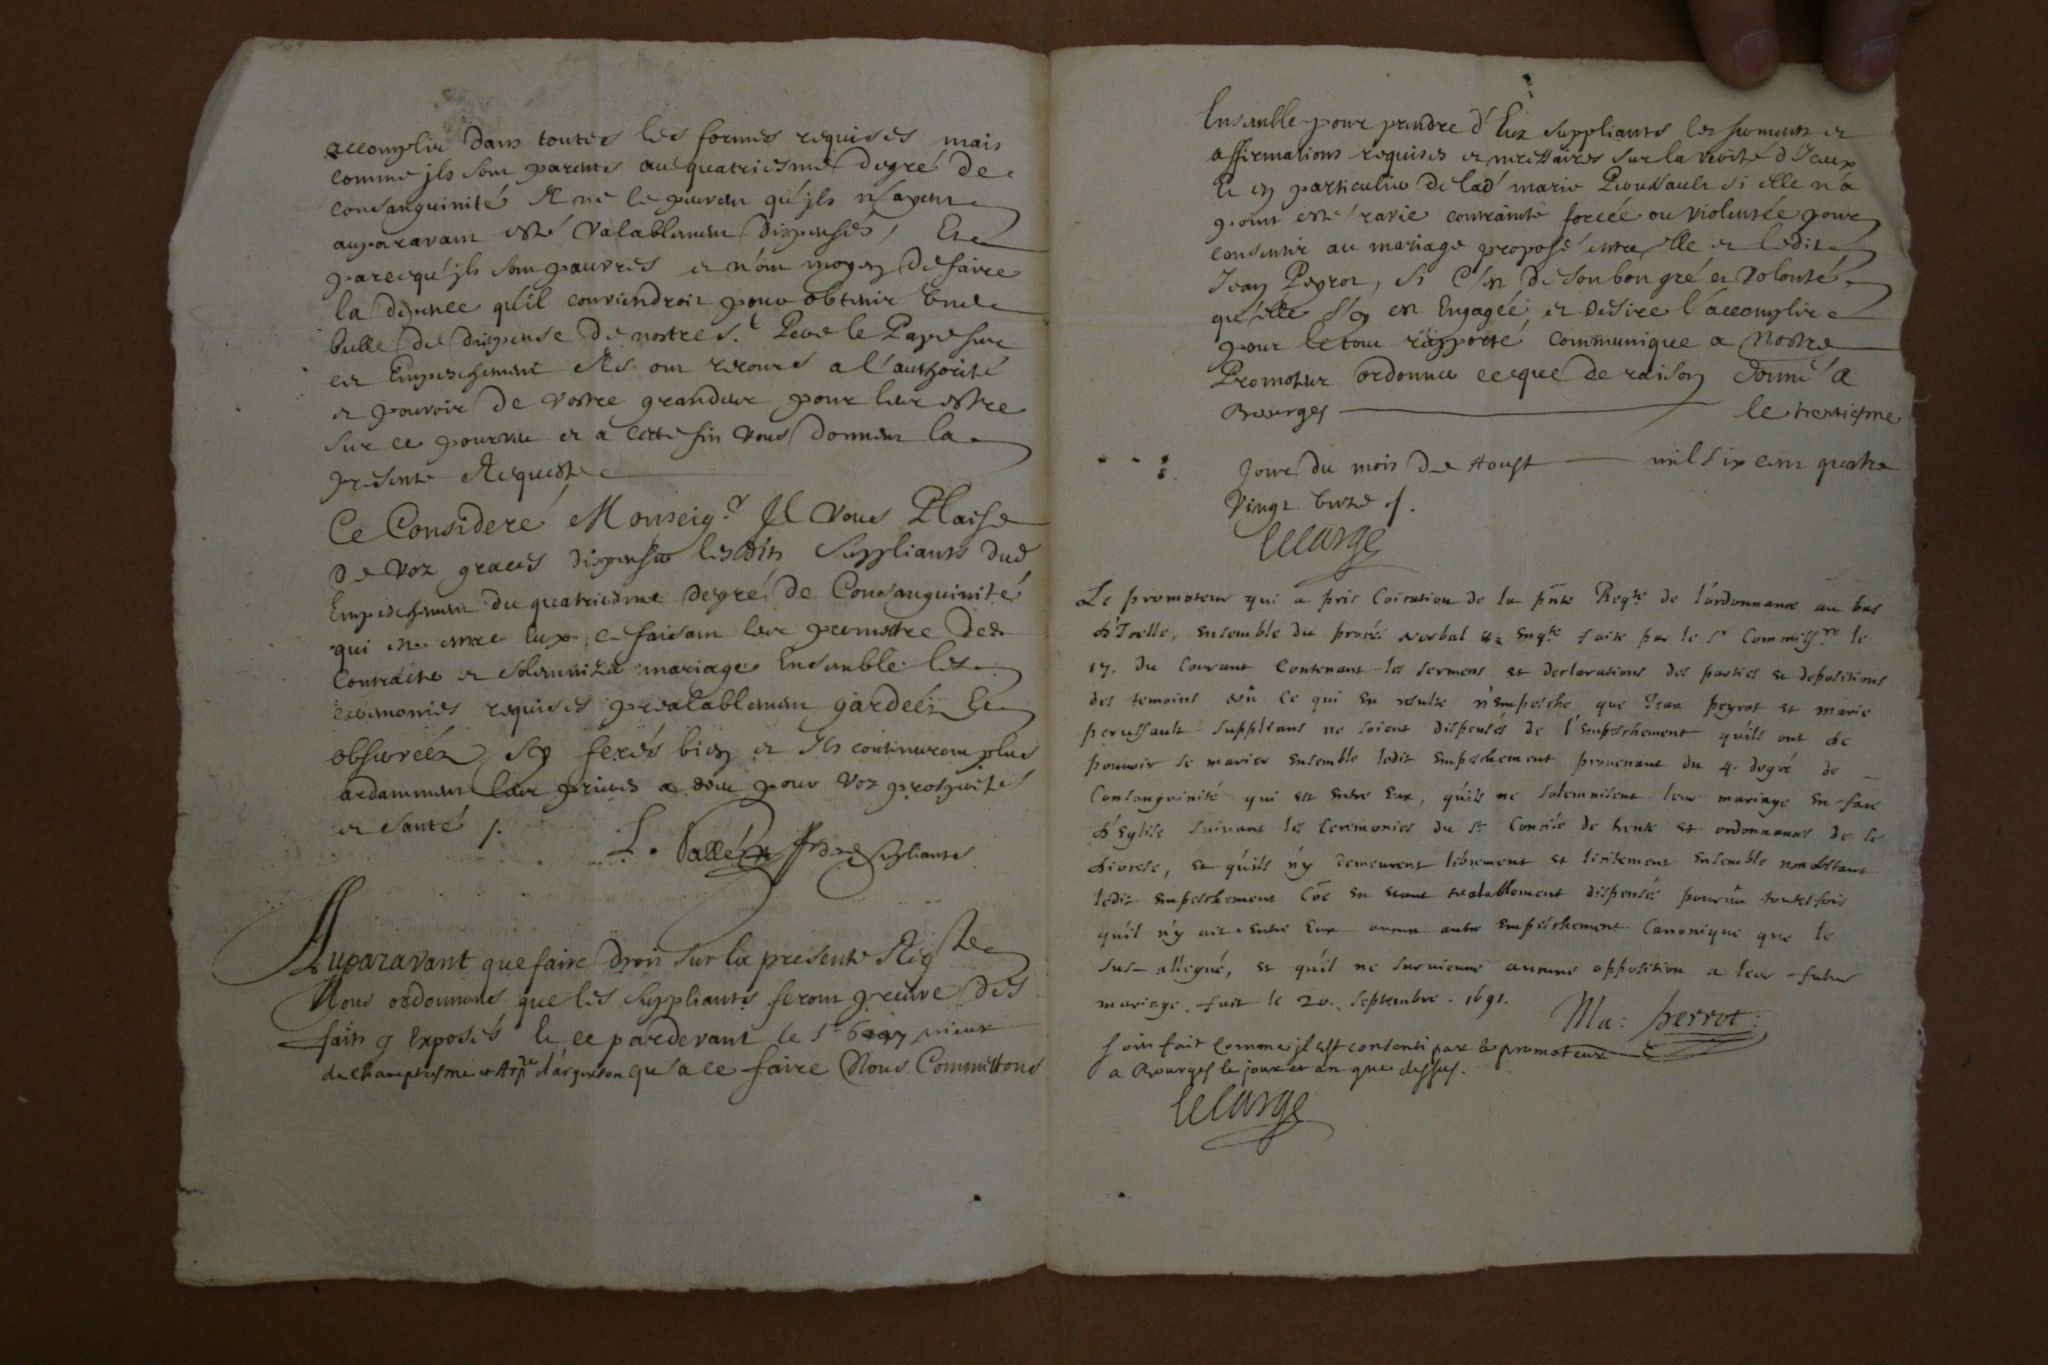 accomplir dans toutes les formes requises mais
comme jls sont parents au quatriesme degré de
consanguinité Et ne le peuvent qu'jls n'ayent
auparavant esté valablement dispensés, Et
parcequ'jls sont pauvres et n'ont moyen de faire
la dépence qu'il conviendroit pour obtenir une
bulle de dispense de nostre S.t Pere le Pape sur
cet Empeschement Ils ont recours a l'authorité
et pouvoir de vostre grandeur pour leur estre
sur ce pourveu et a cette fin vous donnent la
presente Requeste
Ce Consideré Monseig.r Il vous Plaise
de voz graces dispenser lesdits suppliants dud
Empeschement du quatriesme degré de Consanguinité
qui est entre eux, ce faisant leur permettre de
contracter et solemnizer mariage Ensemble les
ceremonies requises prealablement gardeéz Et
observeéz, sy ferés bien et Ils continueront plus
ardamment leur prieres a dieu pour voz prosperités
et santé /.
L. Vallée suppliants
Auparavant que faire droit sur la presente Reqte
Nous ordonnons que les suppliants feront preuve des
faits y Exposés le ce pardevant le Sr prieur
de et Arp.re d'argenton qu'a ce faire Nous Committons
Ensemble pour prendre d'Eux suppliants les serments et
affirmations requises et necessaires sur la verité d'Iceux
Et en particulier de lad' marie Peroussault si elle n'a
point esté ravie contrainte forcée ou violentée pour
consentir au mariage proposé entre elle et ledit
Jean Peyrot, si c'est de son bon gré et volonté
qu'elle s'y est Engagée, et desire l'accomplir
pour le tout rapporté communique a Nostre
Promoteur ordonner ce que de raison donné a
Bourges le trentiesme
jour du mois de Aoust mil six cent quatre
vingt unze /.
lelarge
Le promoteur qui a pris Coication de la pnte Reqte de l'ordonnance au bas
d'Icelle, ensemble du procés verbal et enqte faite par le Sr Commissre le
17. du Courant contenant les sermens et declarations des parties et depositions
des temoins veû ce qui en resulte n'empesche que Jean peyrot et marie
perussault supplians ne soient dispensés de l'Empeschement qu'ils ont de
pouvoir se marier ensemble ledit empeschement provenant du 4. degré de
Consanguinité qui est entre eux, qu'ils ne solemnisent leur mariage en face
d'Eglise suivant les Ceremonies du St Concile de trente et ordonnances de ce
diocese, et qu'ils n'y demeurent librement et licitement ensemble nonobstant
ledit empeschement Côe en etant valablement dispensé pourvû toutesfois
qu'il n'y ait entre Eux aucun autre empeschement Canonique que le
sus-allegué, et qu'il ne survienne aucune opposition a leur futur
mariage. fait le 20. septembre. 1691.
Ma: perrot:
soit fait comme jl est consenti par le promoteur
a Bourges le jour et an que dessus.
lelarge